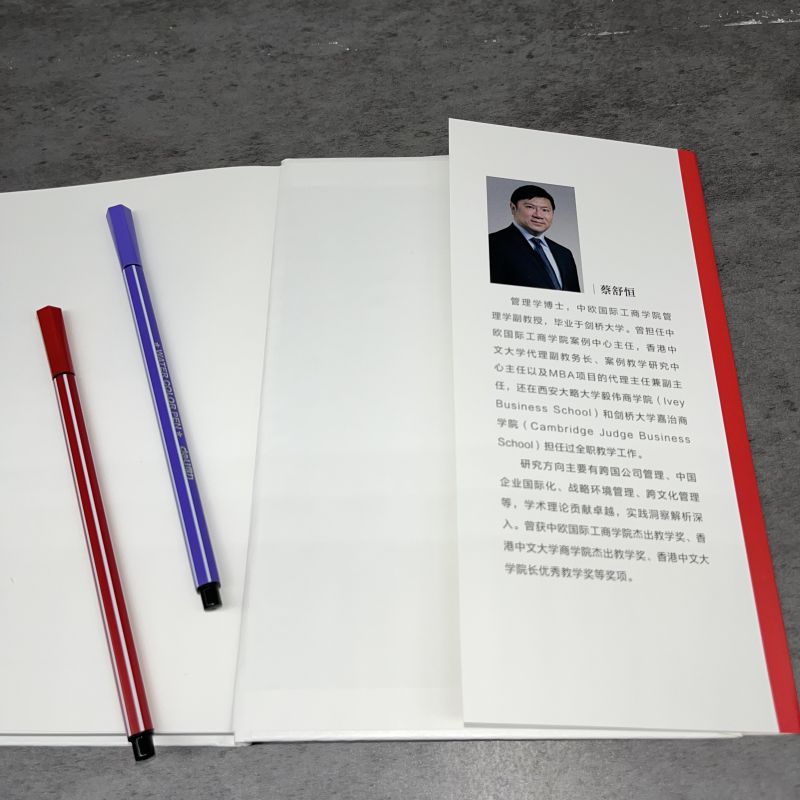 蔡舒恒
管理学博士，中欧国际工商学院管
理学副教授，毕业于剑桥大学。曾担任中
欧国际工商学院案例中心主任，香港中
文大学代理副教务长、案例教学研究中
心主任以及MBA项目的代理主任兼副主
任，还在西安大略大学毅伟商学院（Ivey
Business School）和剑桥大学嘉治商
学院（Cambridge Judge Business
School）担任过全职教学工作。
研究方向主要有跨国公司管理、中国
企业国际化、战略环境管理、跨文化管理
等，学术理论贡献卓越，实践洞察解析深
入。曾获中欧国际工商学院杰出教学奖、香
港中文大学商学院杰出教学奖、香港中文大
学院长优秀教学奖等奖项。
WATER COLOR PEN